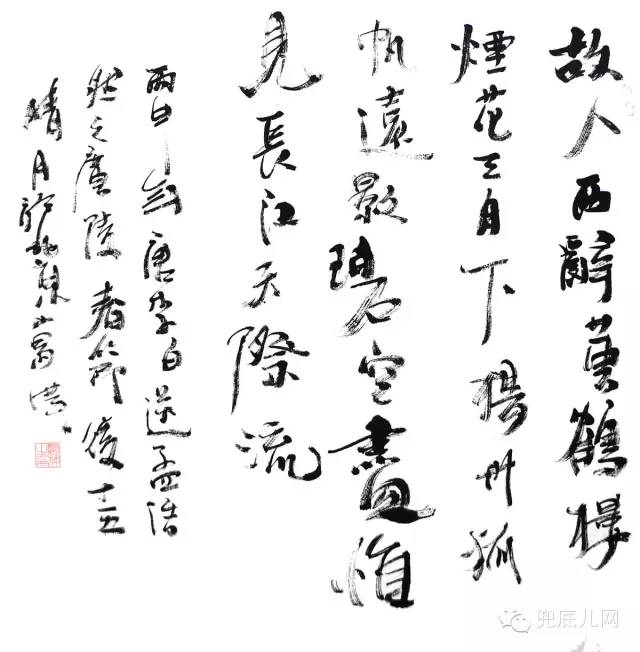 故人西辭黃鶴樓
煙花三月下揚州孤
帆遠影碧空盡惟
見長江天際流
唐李白送孟浩
然之廣陵春節後十五
晴月
兜底儿网